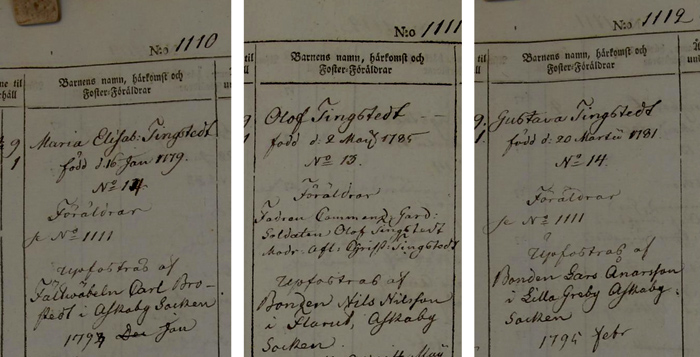 N:o 1110
ne til
rhåll
Barnens namn, härkomst och
Foster-Föräldrar
9
1
Maria Elisab: Tingstedt
född d. 16 Jan 1779.
No
Föräldrar
se No 1111
Upfostras af
Fältwäbeln Carl Bro-
stedt i Askaby Socken
179 Jan
N:o 1111
til
ll
Barnens namn, härkomst och
Foster-Föräldrar
9
1
Olof Tingstedt
född d. 2 Maij 1785
No 13.
Föräldrar
Fadren Commend. Gard:
Soldaten Olof Tingstedt
Modr: Afl: Christ: Tingstedt
Upfostras af
Bonden Nils Nilsson
i Askaby
Socken.
Maij
N:o 1119
til
ll
Barnens namn, härkomst och
Foster-Föräldrar
9.
1.
Gustava Tingstedt
född d: 20 Martii 1781
No 14.
Föräldrar
se No 1111
Upfostras af
Bonden LarsÅnarsson
i Lilla Greby Askaby
Socken
1795 febr